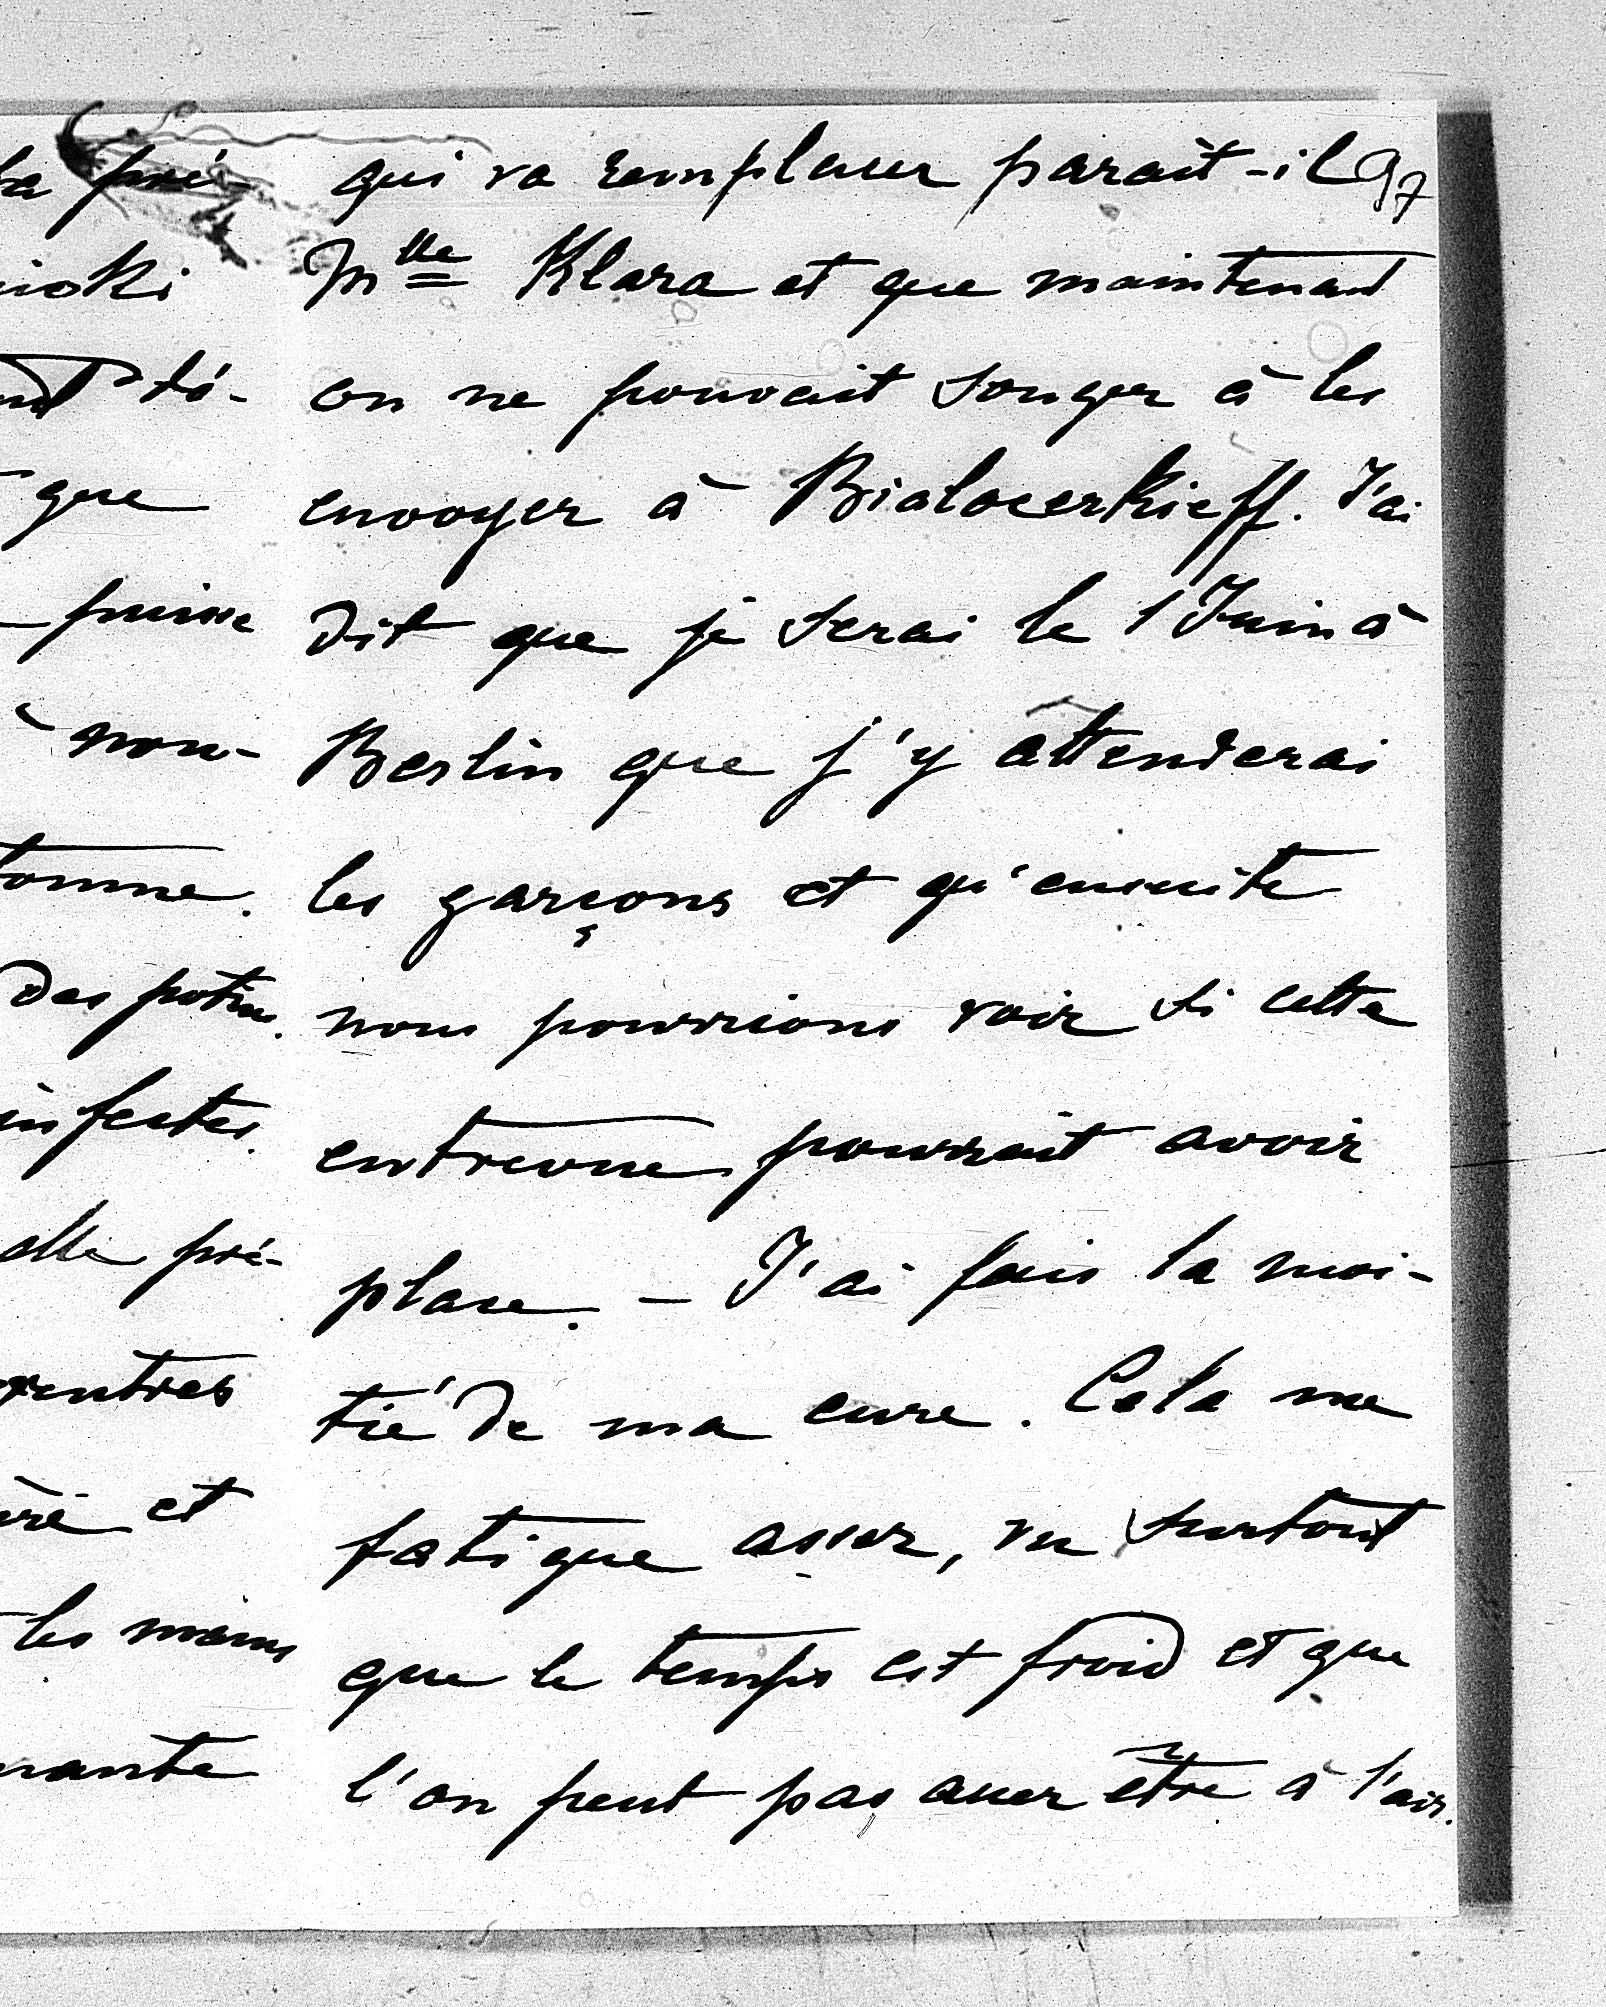 la pré-
que
puisse
nou-
tomne.
des potins.
infectes.
elle pré-
et
les mains
qui va remplacer parait-il 97
Mlle Klara et que maintenant
on ne pouvait songer à les
envoyer à Bialocerkieff. J'ai
dit que je serai le 1 Juin à
Berlin que j'y attenderai
les garçons et qu'ensuite
nous pourrions voir si cette
entrevue pourrait avoir
place. – J'ai fais la moi-
tié de ma cure. Cela me
fatigue assez, vu surtout
que le temps est froid et que
l'on peut pas assez être à l'air.